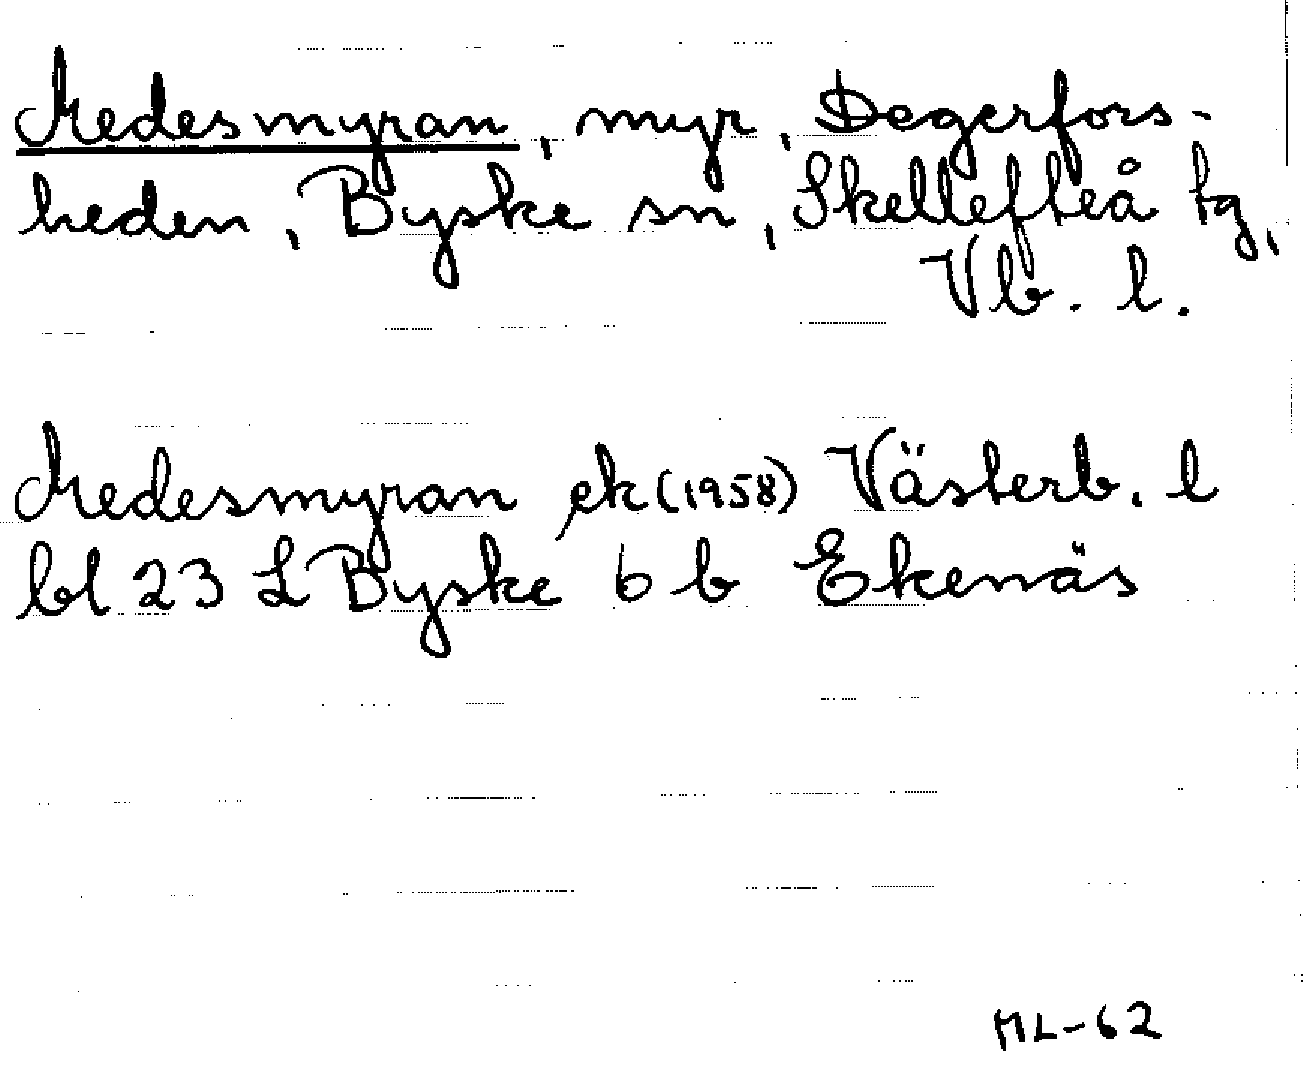 Medesmyran, myr, Degerfors-
heden, Byske sn, Skellefteå tg,
Vb. l.
Medesmyran ek (1958) Västerb. l
bl 23 L Byske 6 b Ekenäs
ML-62